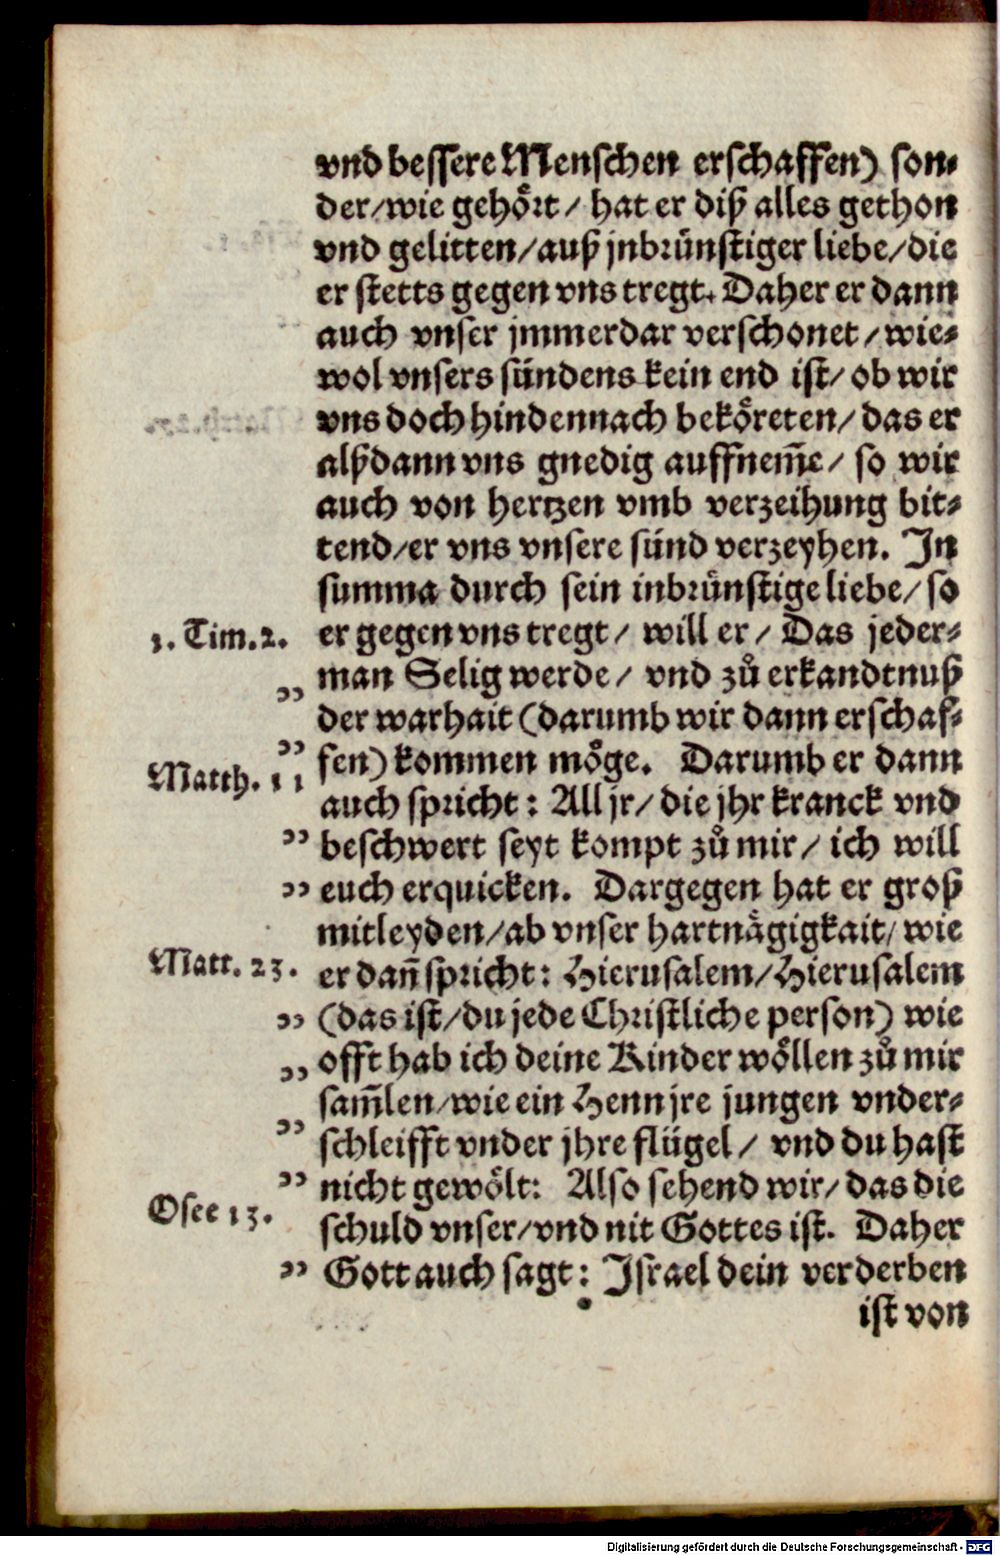 vnd bessere Menschen erschaffen) son-
der/wie gehoͤrt/ hat er diß alles gethon
vnd gelitten/auß jnbruͤnstiger liebe/die
er stetts gegen vns tregt. Daher er dann
auch vnser jmmerdar verschonet/wie-
wol vnsers sündens kein end ist/ob wir
vns doch hindennach bekoͤreten/das er
alßdann vns gnedig auffnem̃e/ so wir
auch von hertzen vmb verzeihung bit-
tend/er vns vnsere sünd verzeyhen. In
summa durch sein inbruͤnstige liebe/so
1. Tim. 2. er gegen vns tregt/ will er/ Das jeder-
„ man Selig werde/ vnd zů erkandtnuß
der warhait (darumb wir dann erschaf-
„ fen) kommen moͤge. Darumb er dann
Matth. 11 auch spricht: All jr/die jhr kranck vnd
„ beschwert seyt kompt zů mir/ ich will
„ euch erquicken. Dargegen hat er groß
mitleyden/ab vnser hartnaͤgigkait/wie
Matt. 23. er dan̄ spricht: Hierusalem/Hierusalem
„ (das ist/du jede Christliche person) wie
„ offt hab ich deine Kinder woͤllen zů mir
sam̄len/wie ein Henn jre jungen vnder-
„ schleifft vnder jhre flügel/ vnd du hast
„ nicht gewoͤlt: Also sehend wir/das die
Osee 13. schuld vnser/vnd nit Gottes ist. Daher
„ Gott auch sagt: Israel dein verderben
ist von
Digitalisierung gefördert durch die Deutsche Forschungsgemeinschaft - DFG